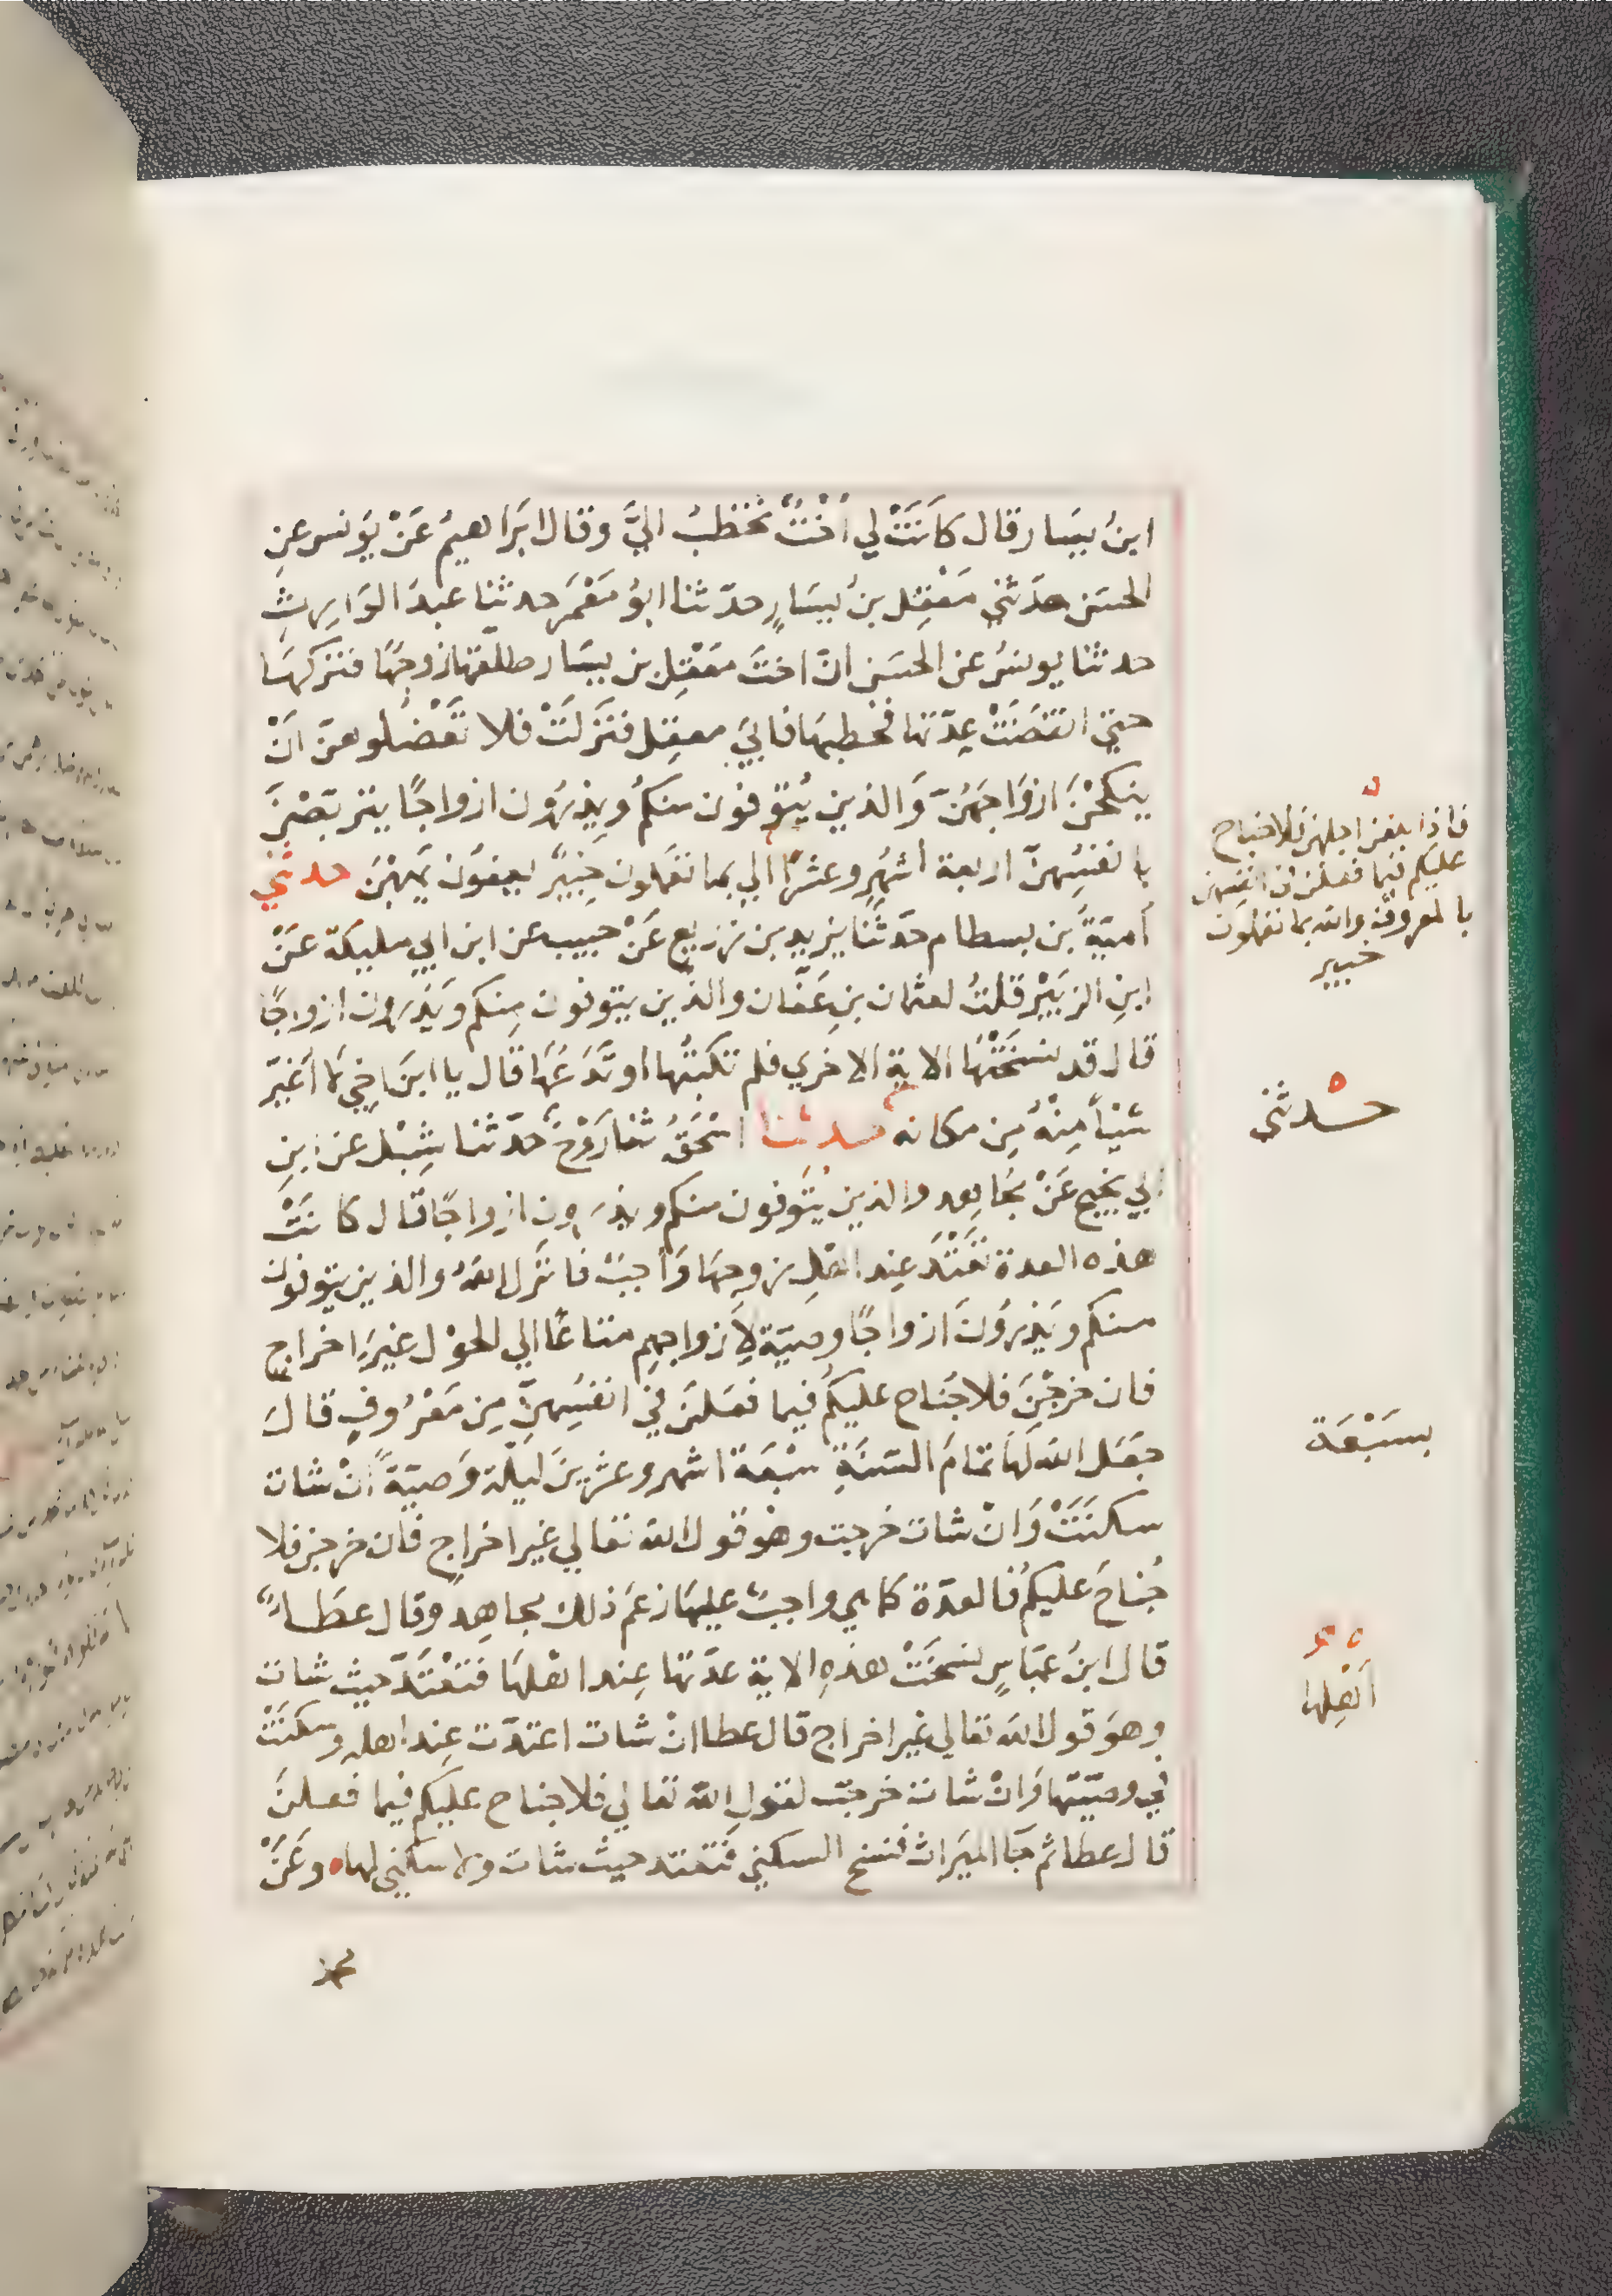 ابنُ يسَار قال كَانَتْ لي أُخْتٌ تُخْطَبُ اليَّ وقال ابرَاهيمُ عَنْ يُونس عنِ
الحسَن حدَّثني مَعْقِل بنُ يسَارٍ حدّثنا ابوُ مَعْمَر حدثنا عبدُ الوَارِثِ
حدثنا يونسُ عن الحسَن انّ اختَ مَعْقِل بن يسَار طلّقهَا زوجُهَا فتركهَا
حتي انقَضَتْ عِدّتها فخطبهَا فابَي معقِل فنَزَلَتْ فلا تَعْضُلُوهنّ انْ
ينكحْنَ ازوَاجَهُنّ وَالذين يُتوفون منكمُ ويذرُون ازواجًا يتربّصْنَ
بانفسِهنّ اربعة أشهُرٍ وعشرًا الي بما تعملون خبيرٌ يعفوُن يَهبْنَ حدثني
أميّةُ بن بسطام حدّثنَا يزيد بن زريع عَنْ حبيب عن ابن ابي مليكة عَنْ
ابنِ الزبَيْر قلتُ لعثمان بنِ عَفّان والذين يتوفون مِنكم وَيَذرون ازواجًا
قال قد نسخَتْهَا الاية الاخري فلم تكتبُها او تَدَعُهَا قال يا ابنَ اخِي لا أُغيّر
شيْاً مِنْهُ مِن مكانه حدثنا اسْحَقُ ثنا رَوْحٌ حدّثنا شِبْل عن ابنِ
ابي نجيح عَنْ مُجاهِد والذين يُتَوفون منكم ويذرون ازواجًا قال كانَتْ
هذه العدة تَعْتَدُّ عِند اهْلِ زوجِهَا وَاجبٌ فانْزَل اللهُ والذين يتوفون
منكم ويَذرُونَ ازواجًا وصيّة لِأزواجهِم متاعًا الي الحوْل غيرَ اخراج
فان خرجْنَ فلا جُناح عليكمُ فيما فعَلنَ في انفسِهنّ مِن مَعْرُوفٍ قالَ
جعَل الله لهَا تمامَ السّنَةِ سبْعَة اشهر وعشرينَ ليلَة وَصيّةً انْ شات
سكنَتْ وَانْ شات خرجت وهْو قول الله تعالي غير اخراجٍ فان خرجن فلا
جُناحَ عليكمُ فالعدّة كما هي واجبٌ عليهَا زعَم ذلك عن مجاهِد وقال عطَاءٌ
قال ابنُ عبّاسٍ نسخَتْ هذهِ الاية عدّتها عِند اهْلهَا فتعْتَدُّ حيث شات
وهوَ قول الله تعالي غيرَ اخراج قال عطا انْ شات اعتدّت عِند اهله وسكنَتْ
في وصيّتها وَانْ شات خرجتْ لقولِ الله تعالي فلا جناح عليكم فيما فعلنَ
قال عطا ثم جَا الميَراث فنسخ السكني فتعتد حيث شات ولا سكني لها وعَنْ
محمد
فاذا بلغن اجلهن فلا جناح
عليكم فيما فعلن في انفسهن
بالمعروف والله بما تعملون
خبير
حدثني
بسَبْعَة
اَهْلِها